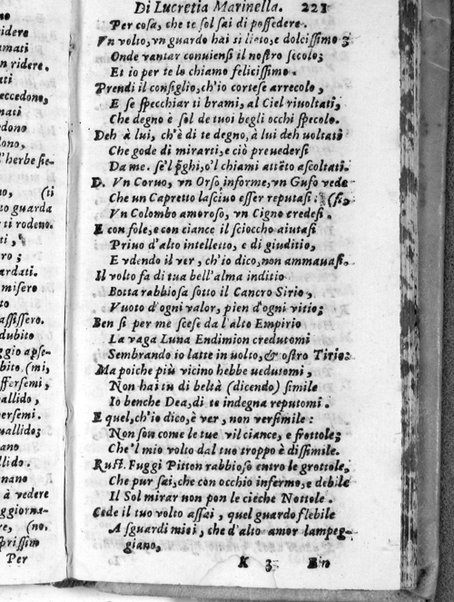 ano
amati
n ridere.
mati
eccedono,
edono
dono,
'herbe sie-
no, (ti
to guarda
ti rodeno.
ti,
ro;
ardati.
misero
ito
assissero.
dubito
ggio apse-
bito, (mi,
ffersemi,
allido,
persemi.
uallido;
nano
llido.
nano
à vedere
ggiorna-
re, (no.
prissimo
Per
Di Lucretia Marinella. 221
Per cosa, che te sol sai di possedere.
Vn volto, vn guardo hai sì lieto, e dolcissimo;
Onde vantar conuiensi il nostro secolo;
Et io per te lo chiamo felicissimo.
Prendi il consiglio, ch'io cortese arrecolo,
E se specchiar ti brami, al Ciel riuoltati,
Che degno è sol de tuoi begli occhi specolo.
Deh à lui, ch'è di te degno, à lui deh uoltati
Che gode di mirarti, e ciò preuedersi
Da me. se'l p̃ghi, o'l chiami attẽto ascoltati.
D. Vn Coruo, vn Orso informe, vn Gufo vede
Che un Capretto lasciuo esser reputasi: (si,
Vn Colombo amoroso, vn Cigno credesi.
E con fole, e con ciance il scioccho aiutasi
Priuo d'alto intelletto, e di giuditio,
E vdendo il ver, ch'io dico, non ammauasi.
Il volto fa di tua bell'alma inditio
Botta rabbiosa sotto il Cancro Sirio,
Vuoto d'ogni valor, pien d'ogni vitio;
Ben si per me scese da l'alto Empirio
La vaga Luna Endimion credutomi
Sembrando io latte in uolto, & ostro Tirio;
Ma poiche più vicino hebbe uedutomi,
Non hai tu di beltà (dicendo) simile
Io benche Dea, di te indegna reputomi.
E quel, ch'io dico, è ver, non versimile:
Non son come le tue vil ciance, e frottole;
Che'l mio volto dal tuo troppo è dissimile.
Rust. Fuggi Pitton rabbioso entro le grottole,
Che pur sai, che con occhio infermo, e debile
Il Sol mirar non pon le cieche Nottole.
Cede il tuo volto assai, quel guardo flebile
A sguardi miei, che d'alto amor lampeg-
giano,
K 3 Ein